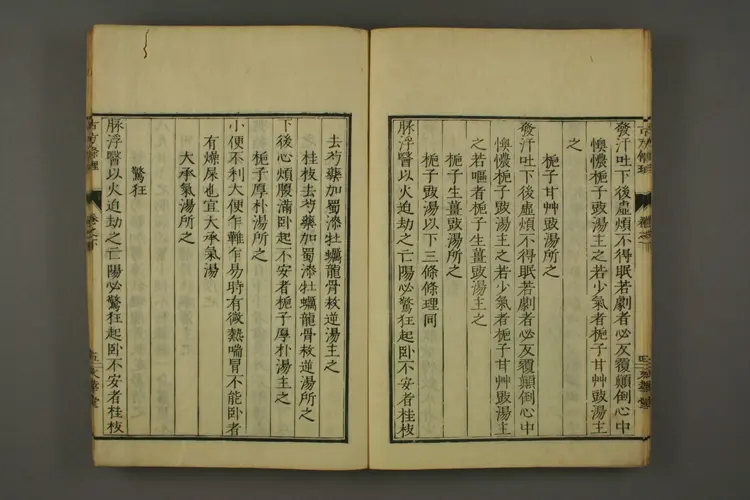 古方條理
卷之下
發汗吐下後虛煩不得眠若劇者必反覆顛倒心中
懊憹梔子豉湯主之若少氣者梔子甘艸豉湯主
之
梔子甘艸豉湯所之
發汗吐下後虛煩不得眠若劇者必反覆顛倒心中
懊憹梔子豉湯主之若少氣者梔子甘艸豉湯主
之若嘔者梔子生薑豉湯主之
梔子生薑豉湯所之
梔子豉湯以下三條條理同
脉浮醫以火迫劫之亡陽必驚狂起卧不安者桂枝
去芍藥加蜀漆牡蠣龍骨救逆湯主之
桂枝去芍藥加蜀漆牡蠣龍骨救逆湯所之
下後心煩腹滿卧起不安者梔子厚朴湯主之
梔子厚朴湯所之
小便不利大便乍難乍易時有微熱喘冒不能卧者
有燥屎也宜大承氣湯
大承氣湯所之
驚狂
脉浮醫以火迫劫之亡陽必驚狂起卧不安者桂枝
古方條理
卷之下